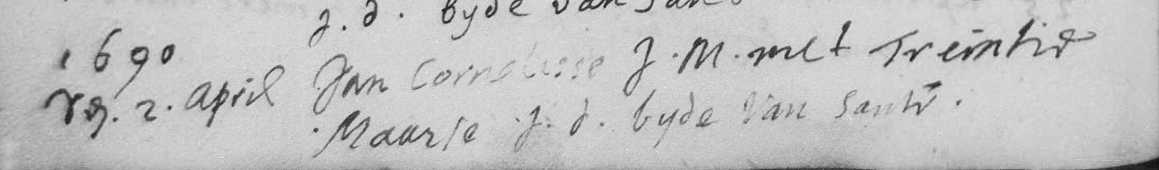 J. d. byde van San
1690
2. April Jan Cornelisse J. M. met Treintie
Maarse J. d. byde van Sante.